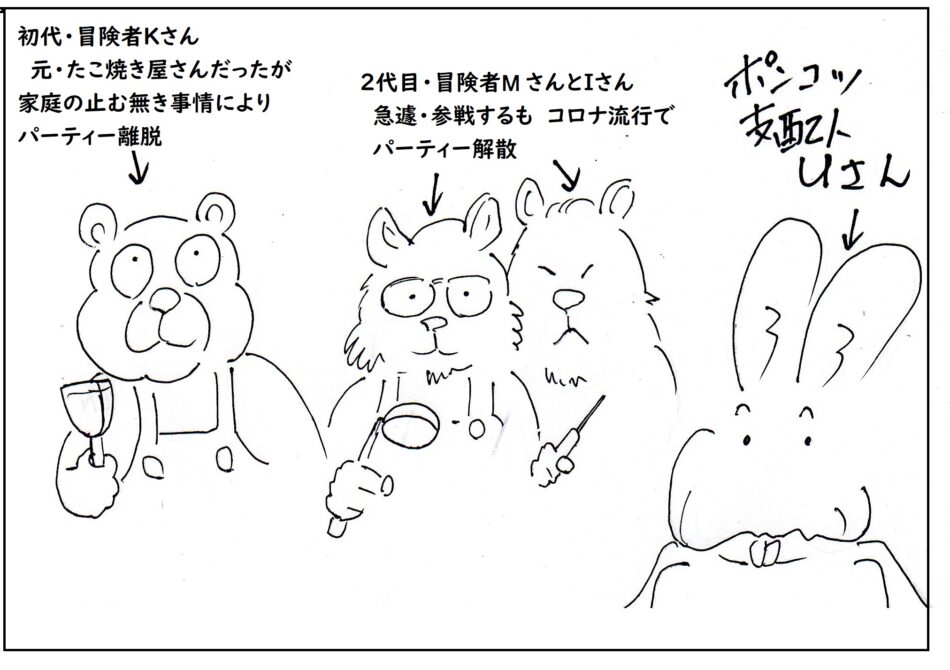 初代・冒険者Kさん
元・たこ焼き屋さんだったが
家庭の止む無き事情により
パーティー離脱
2代目・冒険者MさんとIさん
急遽・参戦するも コロナ流行で
パーティー解散
ポンコツ
支配人
Uさん